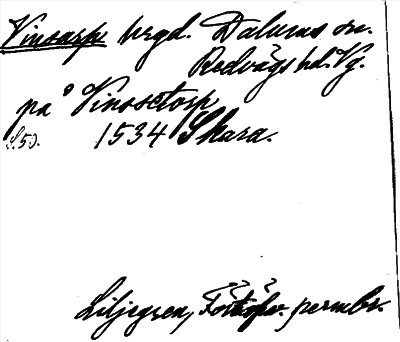 Vinsarp hrgd. Dalums sn.
Redvägs hd. Vg.
på Vinsetorp
S. 50. 1534 Skara.
Liljegren, Förtekn. permbr.